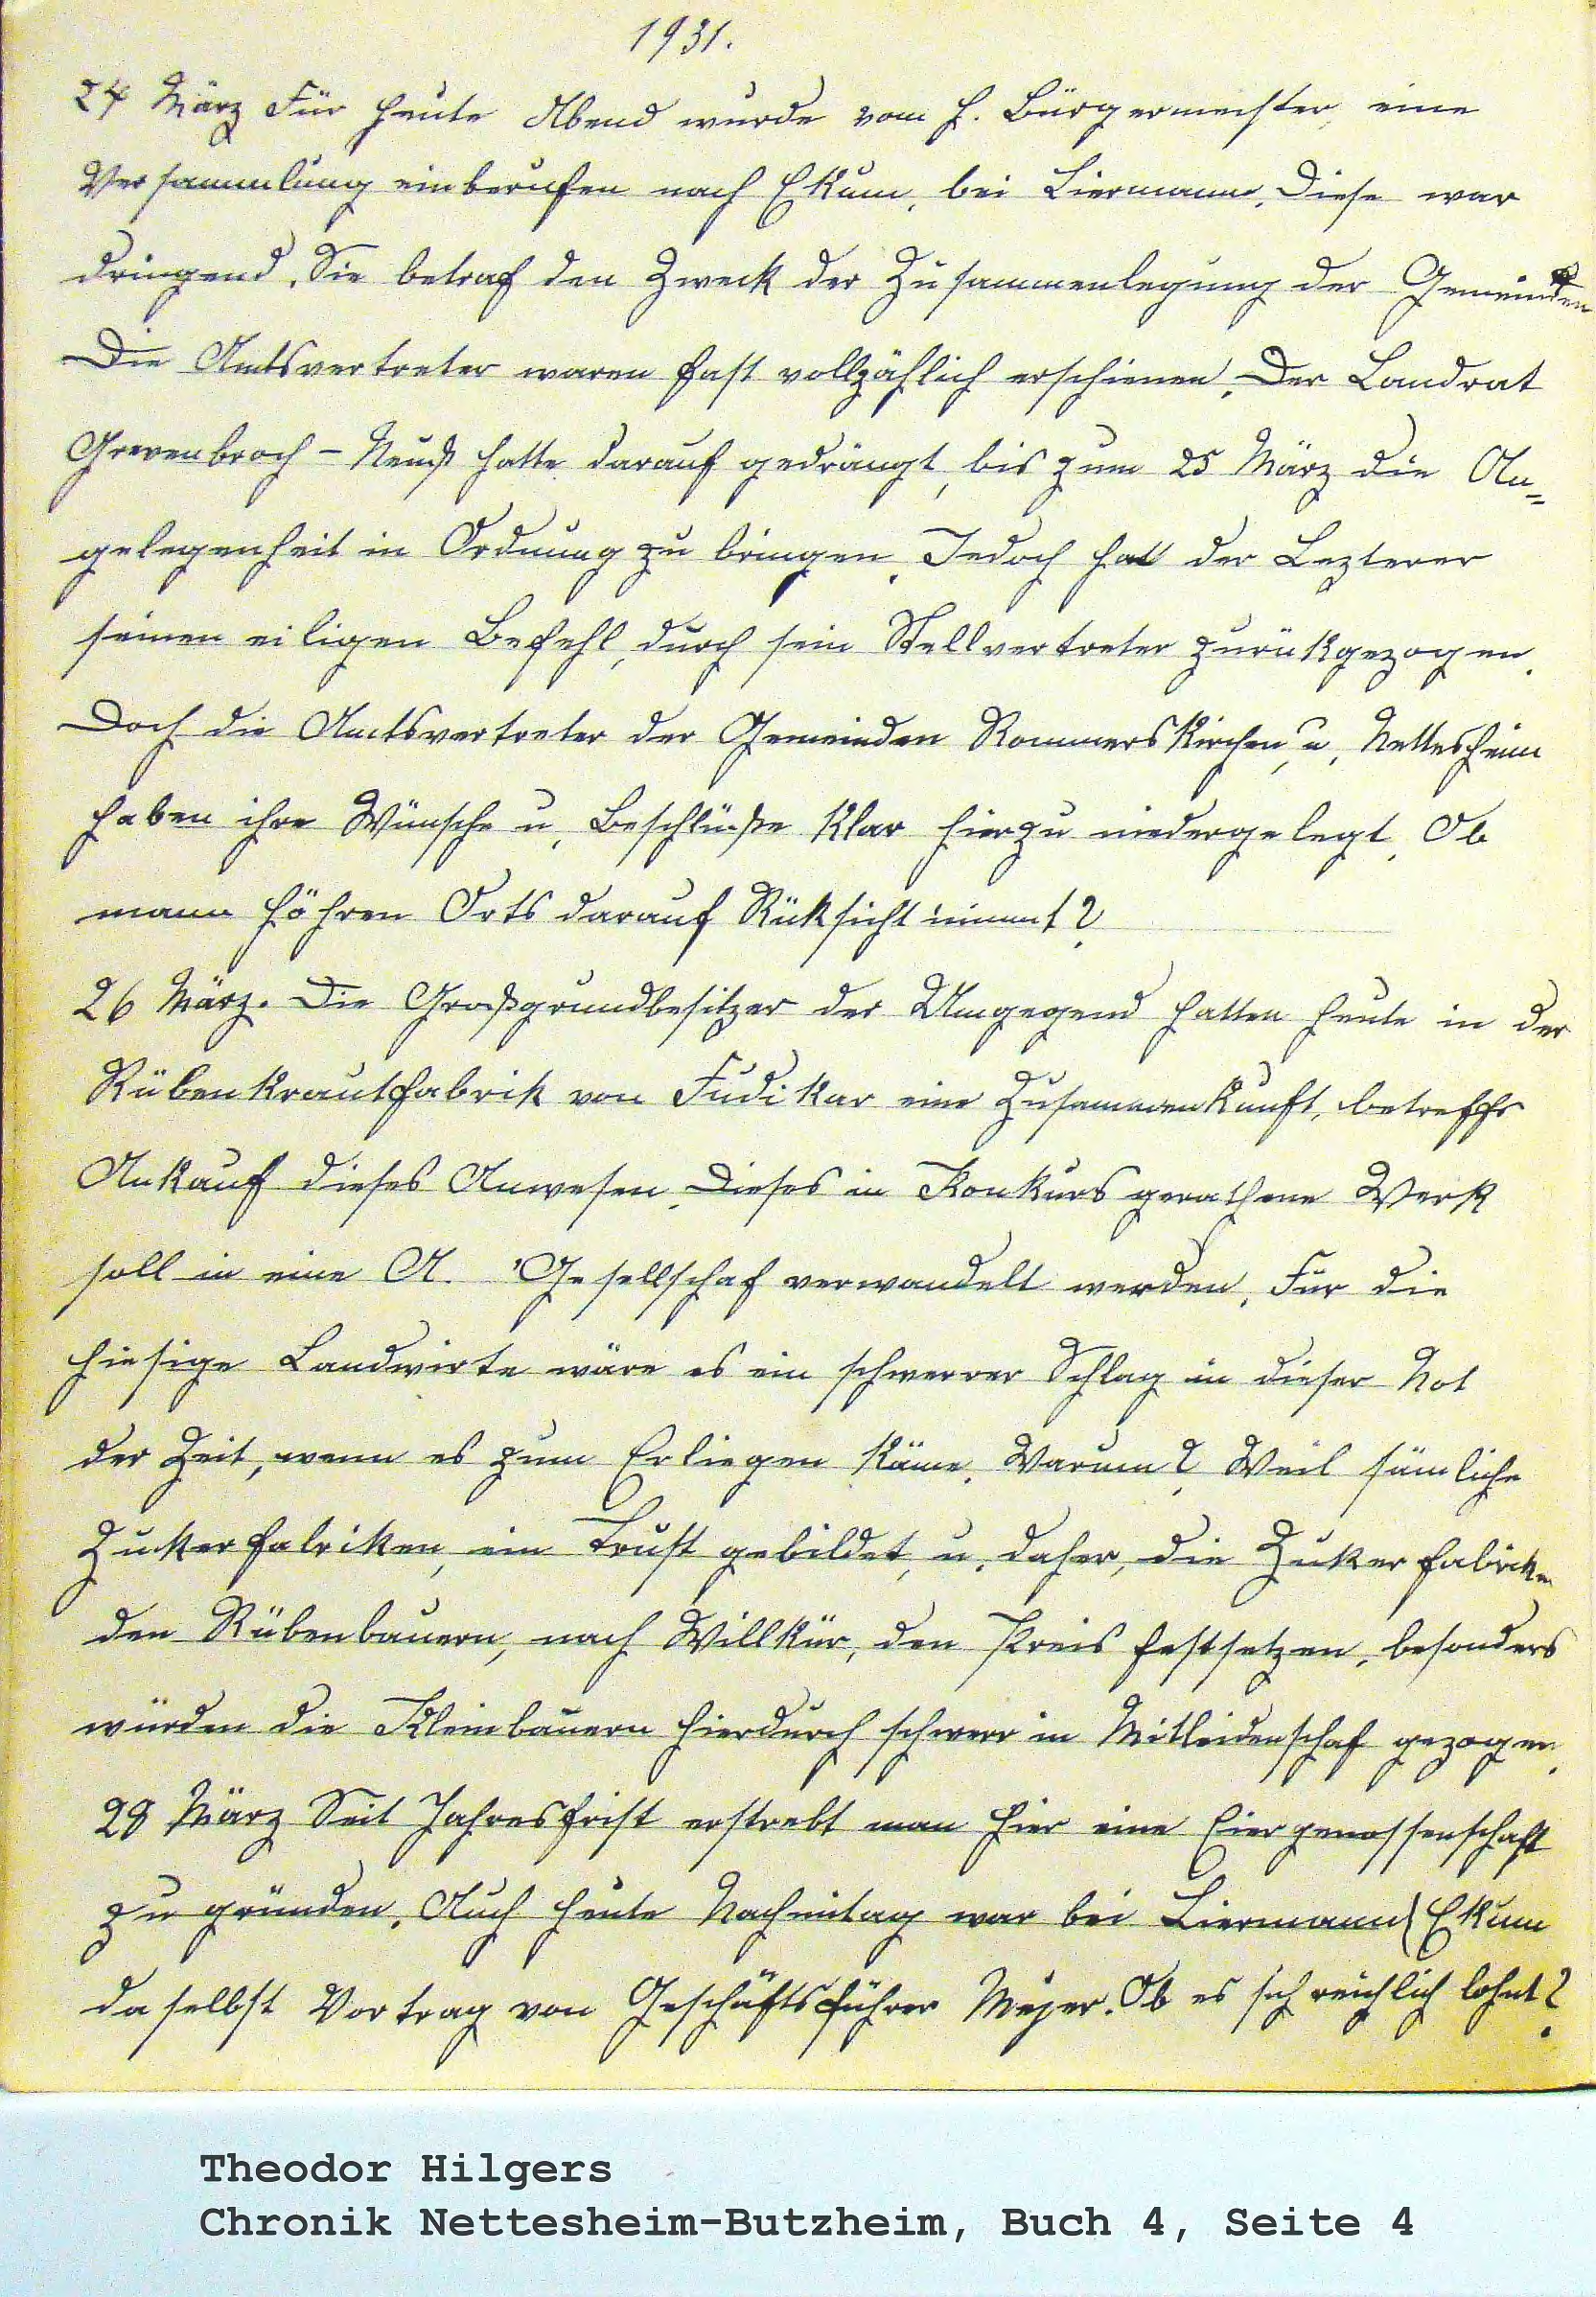 1931.
24 März Für heute Abend wurde vom H. Bürgermeister, eine
Versammlung einberufen nach Ekum, bei Liermann. Diese war
dringend. Sie betraf den Zweck der Zusammenlegung der Gemeinden
Die Amtsvertreter waren fast vollzählich erschienen. Der Landrat
Grevenbroch - Neuß hatte darauf gedrängt, bis zum 25 März die An=
gelegenheit in Ordnung zu bringen. Jedoch hat der Lezterer
seinen eiligen Befehl, durch sein Stellvertreter zurükgezogen.
Doch die Amtsvertreter der Gemeinden Rommerskirchen, u, Nettesheim
haben ihre Wünsche u, Beschlüße klar hierzu niedergelegt, Ob
mann höhren Orts darauf Rüksicht nimmt?
26 März. Die Großgrundbesitzer der Umgegend hatten heute in der
Rübenkrautfabrik von Fudikar eine Zusammenkunft, betreffs
Ankauf dieses Anwesen. Dieses in Konkurs gerathene Werk
soll in eine A. Gesellschaf verwandelt werden. Für die
hiesige Landwirte wäre es ein schwerrer Schlag in dieser Not
der Zeit, wenn es zum Erliegen käme. Warum? Weil sämliche
Zukerfabriken, ein Trust gebildet, u, daher, die Zukerfabriken
den Rübenbauern, nach Willkür, den Preis festsetzen, besonders
würden die Kleinbauern hierdurch schwer in Mitleidenschaf gezogen.
28 März Seit Jahresfrist erstrebt man hier eine Eiergenossenschaft
zu gründen. Auch heute Nachmitag war bei Liermann Ekum
daselbst Vortrag von Geschäftsführer Mejer. Ob es sich reichlich lohnt?
Theodor Hilgers
Chronik Nettesheim-Butzheim, Buch 4, Seite 4